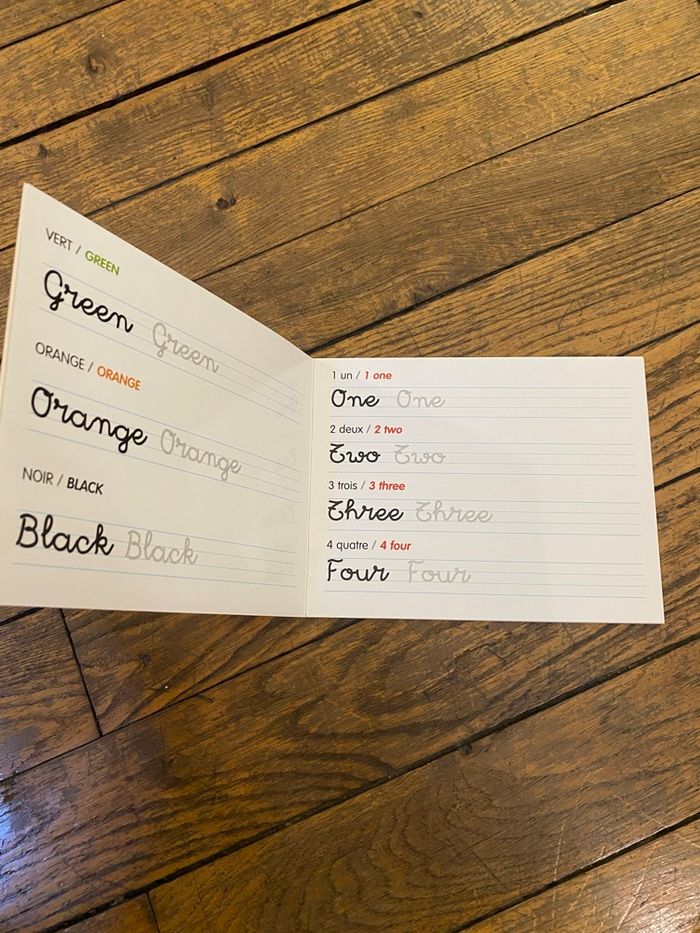 VERT / GREEN
Green Green
ORANGE / ORANGE
Orange Orange
NOIR / BLACK
Black Black
1 un / 1 one
One One
2 deux / 2 two
Two Two
3 trois / 3 three
Three Three
4 quatre / 4 four
Four Four